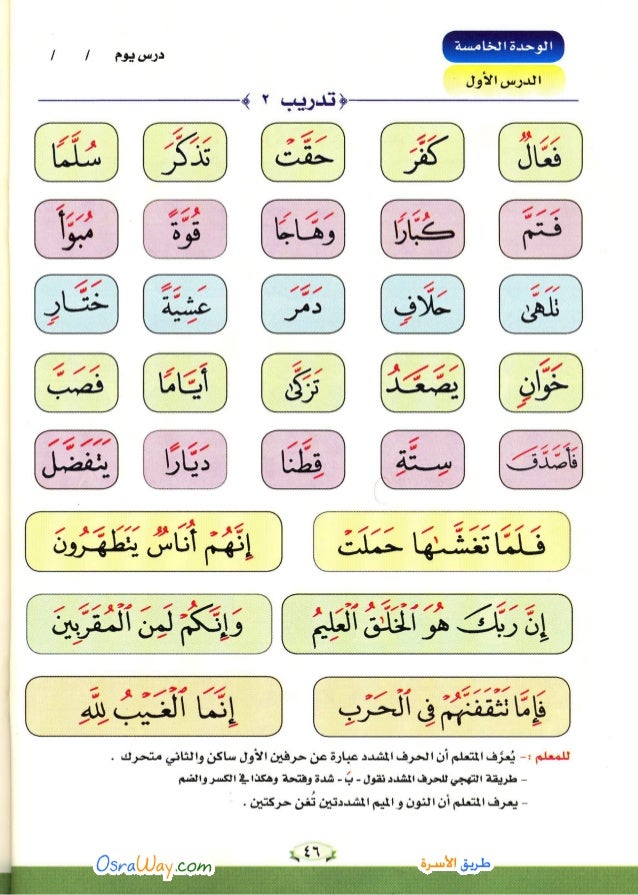 الوحدة الخامسة
درس يوم / /
الدرس الأول
تدريب ٢
فَعَّالٌ كَفَّرَ حَقَّتْ تَذَكَّرَ سُلَّمًا
فَتَمَّ كُبَّارًا وَهَّاجًا قُوَّةً مُبَوَّأَ
تَلَهَّىٰ حَلَّافٍ دَمَّرَ عَشِيَّةً خَتَّارٍ
خَوَّانٍ يَصَّعَّدُ تَزَكَّىٰ أَيَّامًا فَصَبَّ
فَأَصَّدَّقَ سِتَّةِ قِطَّنَا دَيَّارًا يَتَفَضَّلَ
فَلَمَّا تَغَشَّىٰهَا حَمَلَتْ إِنَّهُمْ أُنَاسٌ يَتَطَهَّرُونَ
إِنَّ رَبَّكَ هُوَ ٱلْخَلَّٰقُ ٱلْعَلِيمُ وَإِنَّكُمْ لَمِنَ ٱلْمُقَرَّبِينَ
فَإِمَّا تَثْقَفَنَّهُمْ فِي ٱلْحَرْبِ إِنَّمَا ٱلْغَيْبُ لِلَّهِ
للمعلم :- يُعرَّف المتعلم أن الحرف المشدد عبارة عن حرفين الأول ساكن والثاني متحرك .
- طريقة التهجي للحرف المشدد نقول - بَّ - شدة وفتحة وهكذا في الكسر والضم
- يعرف المتعلم أن النون و الميم المشددتين تُغن حركتين .
٤٦
OsraWay.com
طريق الأسرة